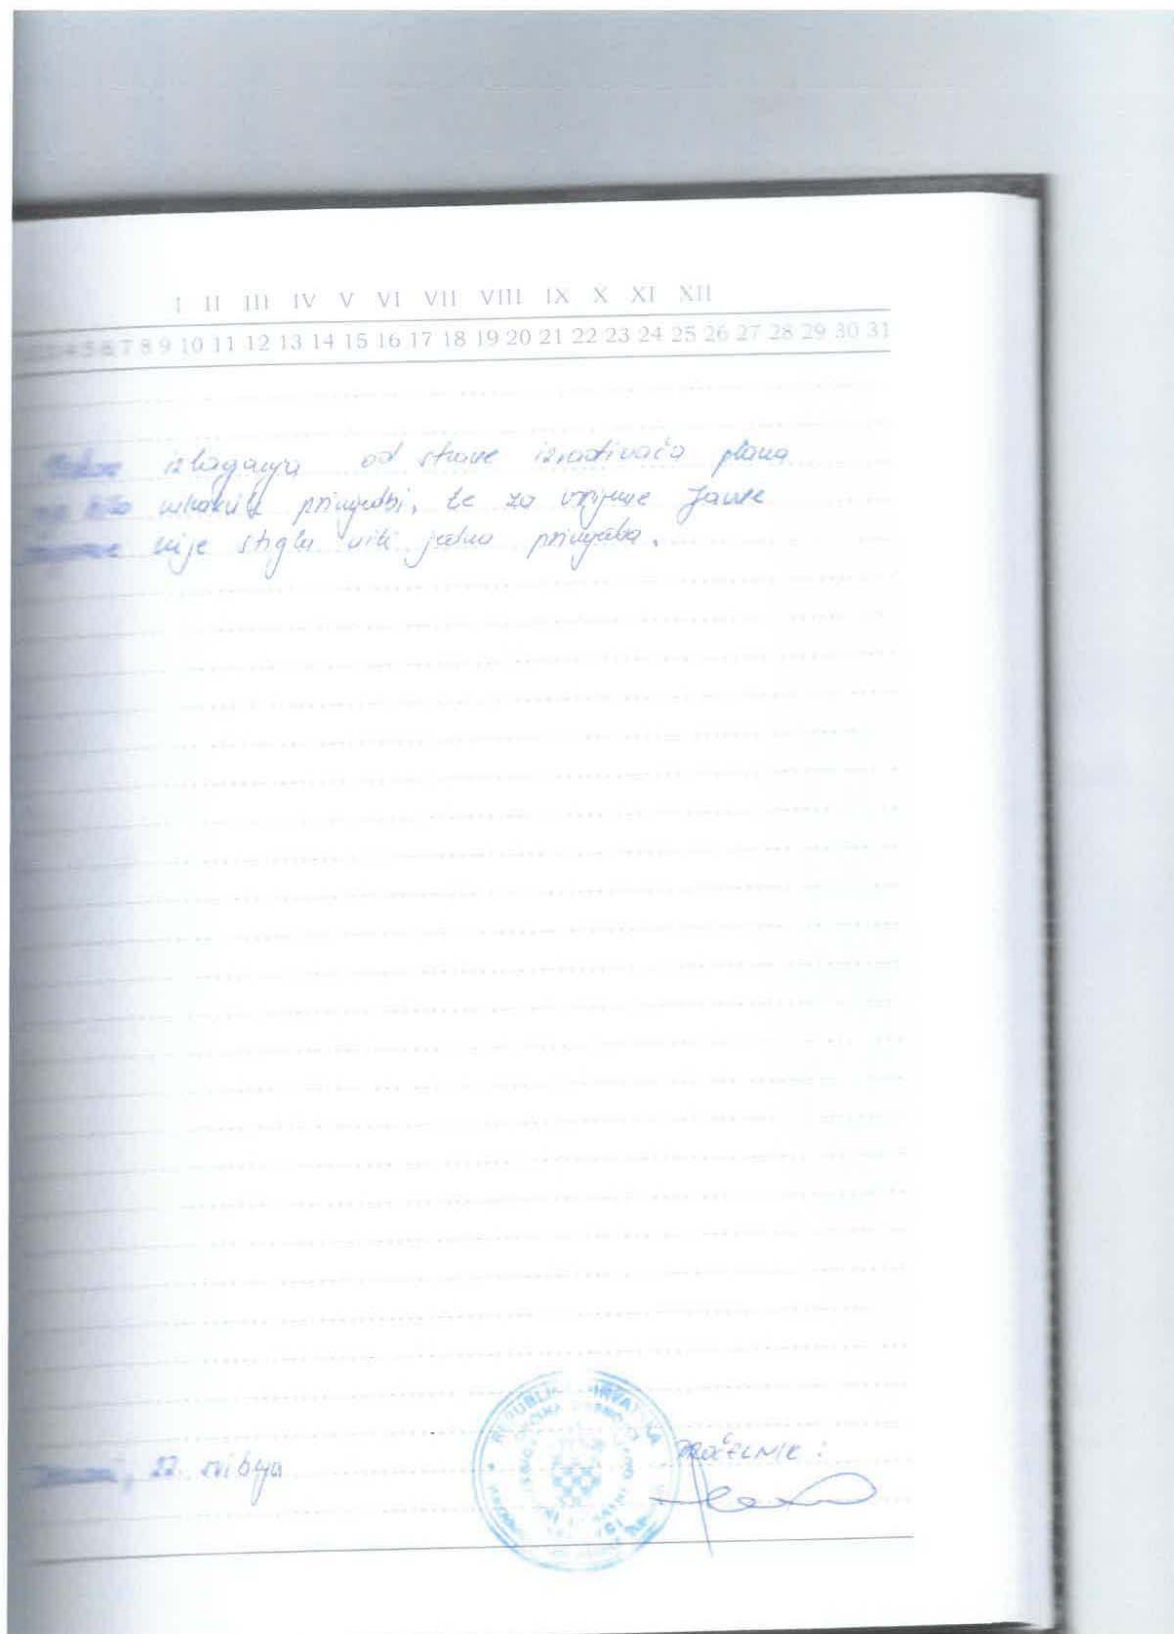 I II III IV V VI VII VIII IX X XI XII
4 5 6 7 8 9 10 11 12 13 14 15 16 17 18 19 20 21 22 23 24 25 26 27 28 29 30 31
Nakon izlaganja od strane izrađivača plana
nije bilo nikakvih primjedbi, te za vrijeme Javne
nije stigla niti jedna primjedba.
REPUBLIKA HRVATSKA
PROČELNIK:
22. svibnja